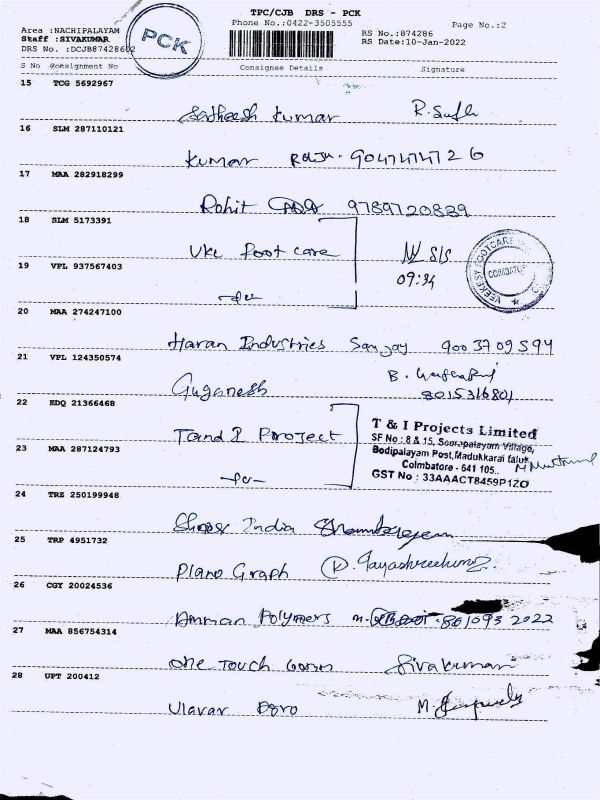 TPC/CJB DRS - PCK
Phone No.:0422-3505555
Page No.:2
Area :NACHIPALAYAM
Staff :SIVAKUMAR
DRS No. :DCJB87428602
PCK
RS No.:874286
RS Date:10-Jan-2022
S No Consignment No Consignee Details Signature
15 TCG 5692967
Satheesh Kumar R.
16 SLM 287110121
Kumar Raju - 9047474726
17 MAA 282918299
Rohit 9789720839
18 SLM 5173391
VKC Foot care
09:34
COIMBATORE
19 VPL 937567403
20 MAA 274247100
Haran Industries Sanjay 9003709594
21 VPL 124350574
Guganesh B.
8015316801
22 EDQ 21366468
T and I Project
T & I Projects Limited
SF No : 8 & 15, Seerapalayam Village,
Bodipalayam Post, Madukkarai taluk,
Coimbatore - 641 105..
GST No : 33AAACT8459P1ZO
23 MAA 287124793
24 TRZ 250199948
India
25 TRP 4951732
Plano Graph
26 CGY 20024536
Amman Polymers
27 MAA 856754314
One Touch Sivakumar
28 UPT 200412
Ulavar M.